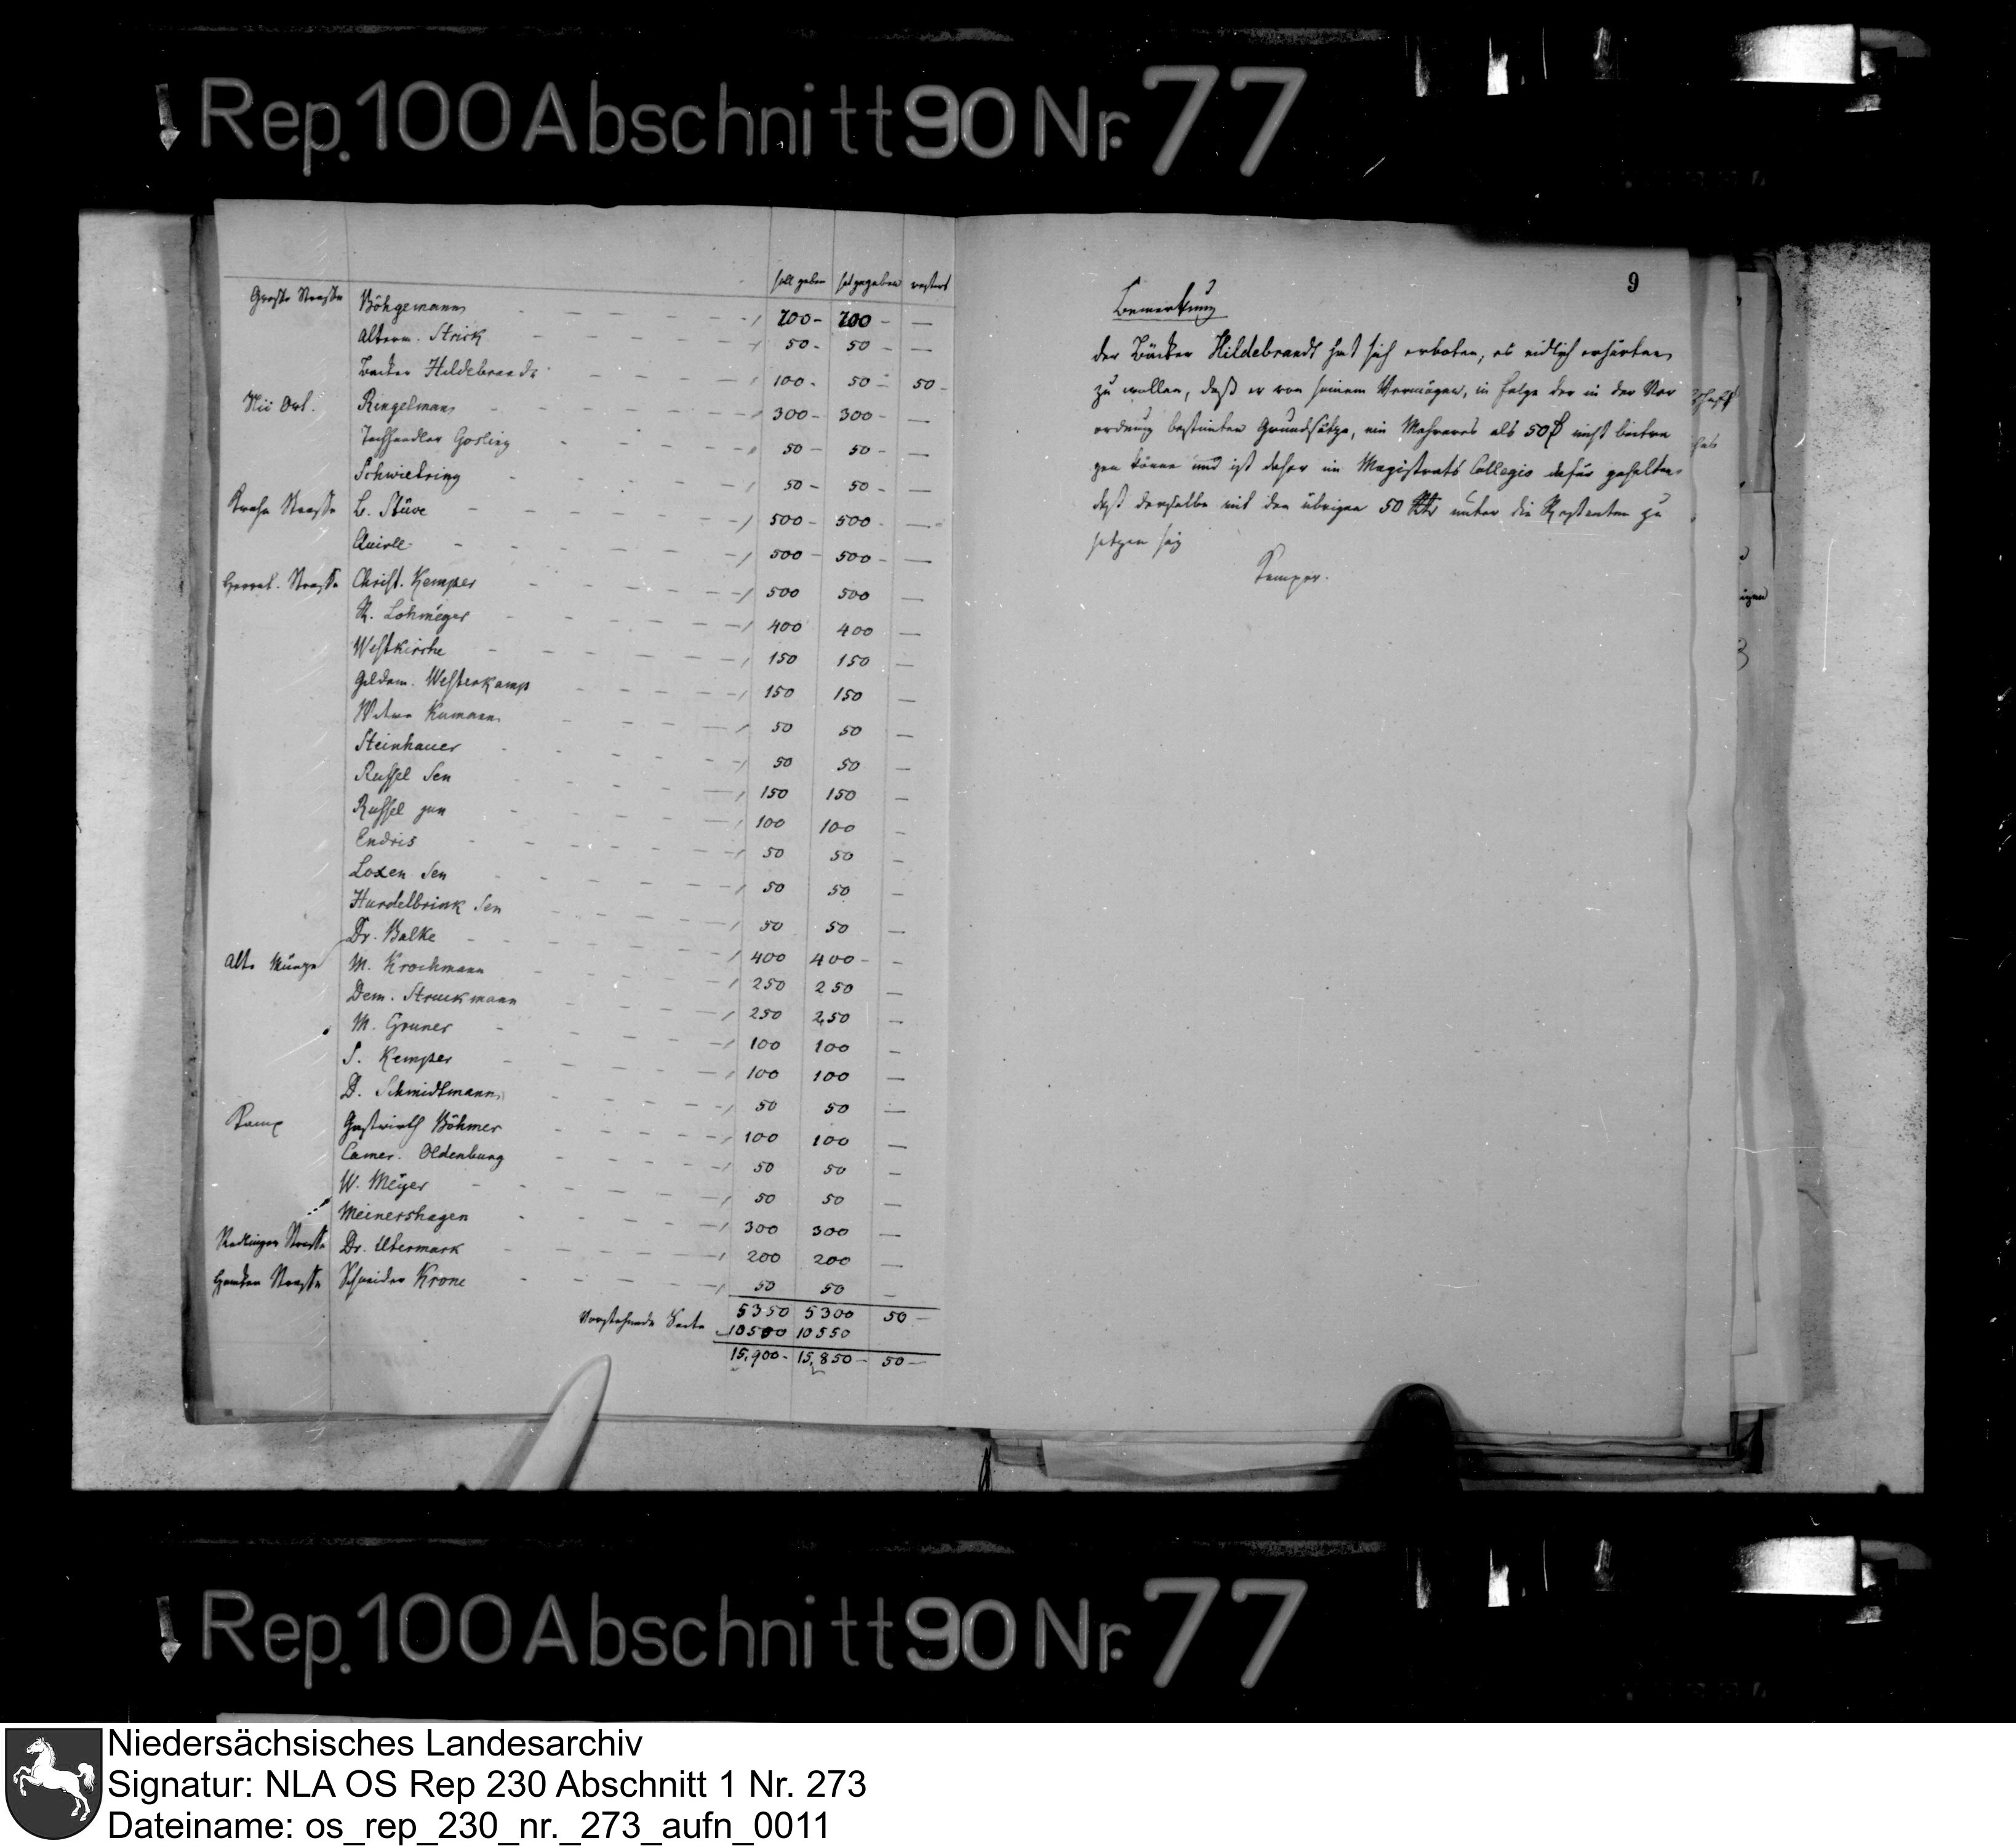 Rep. 100 Abschnitt 90 Nr. 77
soll geben hat gegeben restirt
Große Straße Böhgemann 200 - 200 - —
Alterm. Strick 50 - 50 - —
Becker Hildebrandt 100 - 50 - 50 -
Ringelmann 300 - 300 - —
Gosling 50 - 50 - —
Schwietring 50 - 50 - —
Krahn Straße L. Stüve 500 - 500 - —
Quirll 500 - 500 - —
Straße Christ. Kemper 500 500 —
R. Lohmeyer 400 400 —
Westkirche 150 150 —
Gildem. Westerkamp 150 150 —
Witwe Kumann 50 50 —
Steinhauer 50 50 —
Russel Sen 150 150 —
Russel jun 100 100 —
Endris 50 50 —
Loxen Sen 50 50 —
Hurdelbrink Sen 50 50 —
Dr. Balke 400 400 - —
Alte Münze M. Krochmann 250 250 —
Dem. Struckmann 250 250 —
M. Gruner 100 100 —
S. Kemper 100 100 —
D. Schmidtmann 50 50 —
Kamp Gastwirth Böhmer 100 100 —
Camer. Oldenburg 50 50 —
W. Meyer 50 50 —
Meinershagen 300 300 —
Redlinger Straße Dr. Utermark 200 200 —
Haken Straße Schneider Krone 50 50 —
5350 5300 50 —
Vorstehende Seite 10500 10550
15,900 - 15,850 - 50 —
9
Bemerkung
der Bäcker Hildebrandt hat sich erboten, es eidlich erhärten
zu wollen, daß er von seinem Vermögen, in Folge der in der Ver
ordnung bestimten Grundsätze, ein Mehreres als 50 nicht beitra
gen könne und ist daher im Magistrats Collegio dafür gehalten
daß derselbe mit den übrigen 50 Rtlr unter die Restanten zu
setzen sey
Kemper.
Rep. 100 Abschnitt 90 Nr. 77
Niedersächsisches Landesarchiv
Signatur: NLA OS Rep 230 Abschnitt 1 Nr. 273
Dateiname: os_rep_230_nr._273_aufn_0011